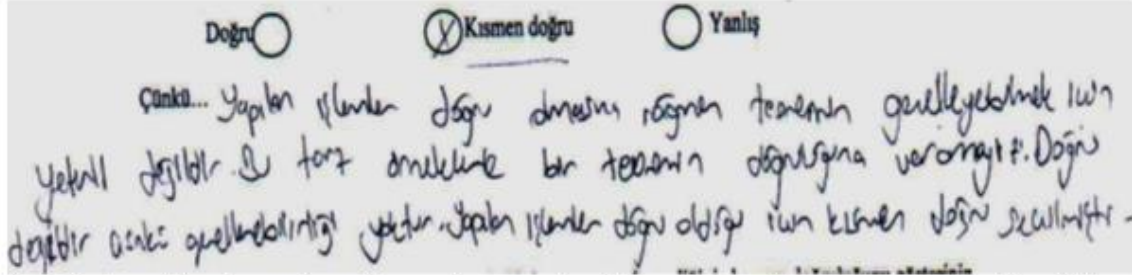 Doğru Kısmen doğru Yanlış
Çünkü... Yapılan işlemler doğru olmasına rağmen teoremin genelleyebilmek için
yeterli değildir. Bu tarz örneklerle bir teoremin doğruluğuna varamayız. Doğru
değildir çünkü genellenebilirliği yoktur. Yapılan işlemler doğru olduğu için kısmen doğru seçilmiştir.